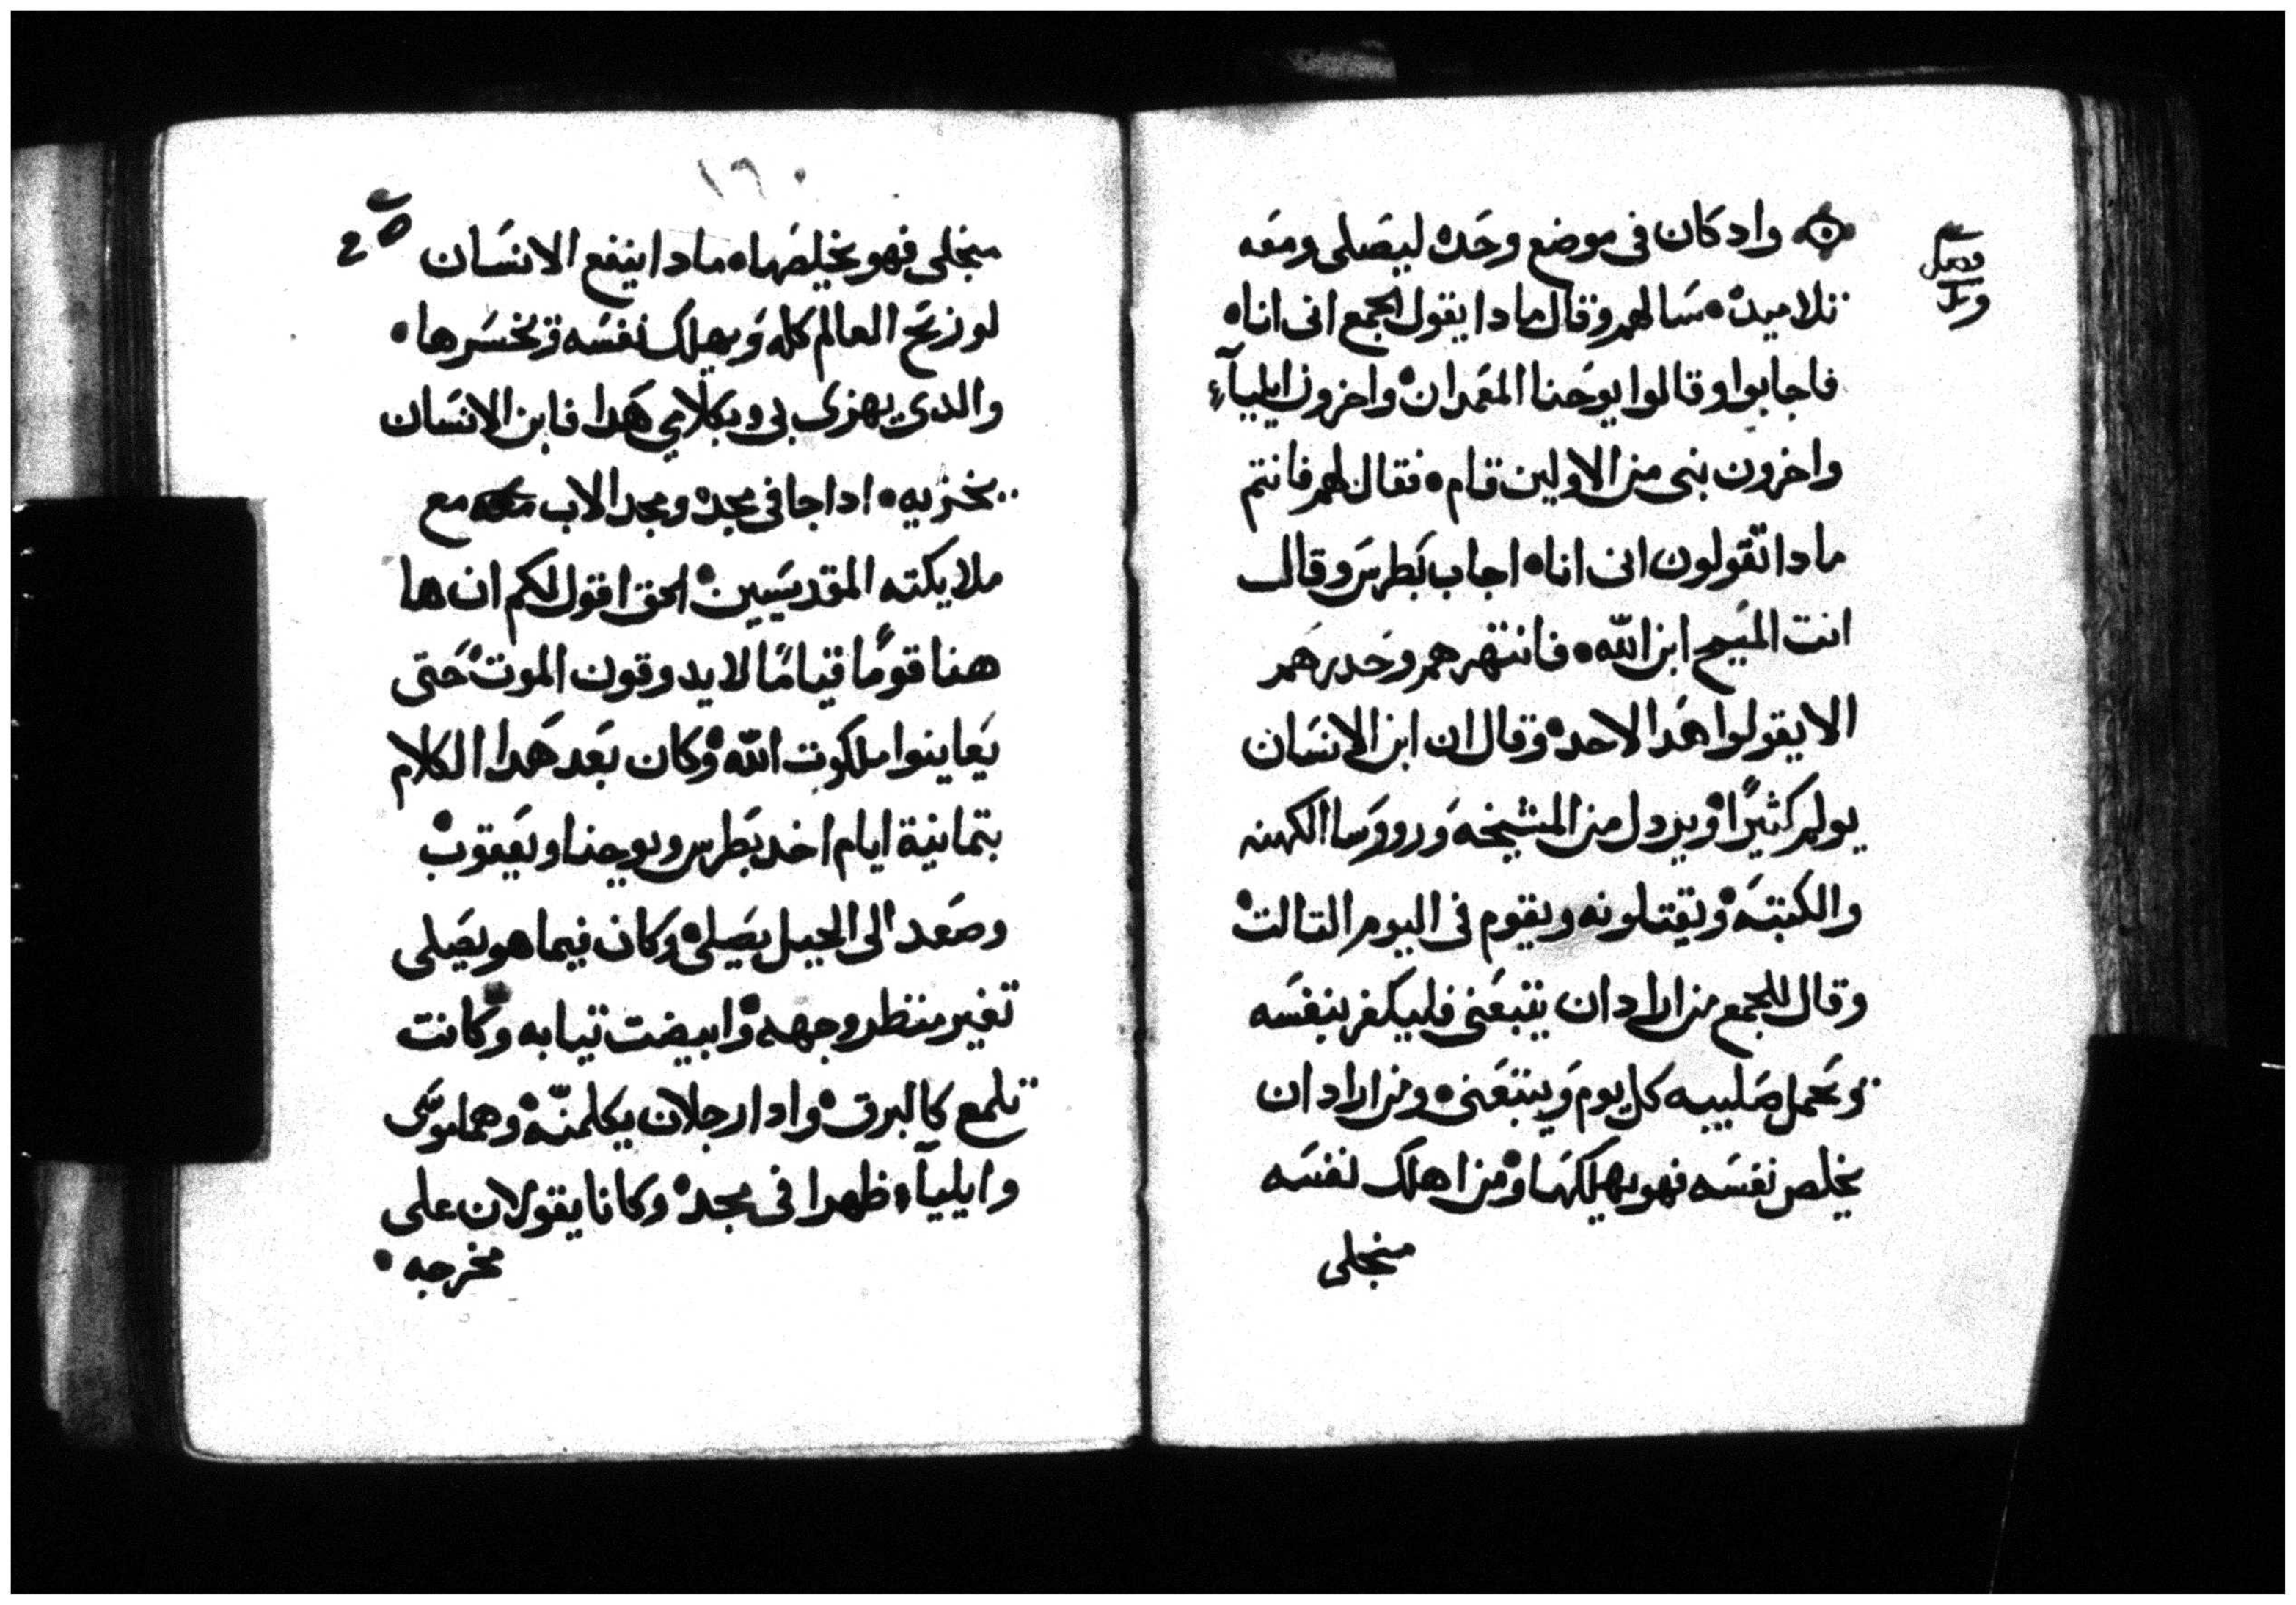 فصل
واد كان فى موضع وحده ليصلى ومعه
تلاميده سالهم وقال ما دا يقول الجمع انى انا
فاجابوا وقالوا يوحنا المعمدان واخرون ايليآء
واخرون نبى من الاولين قام فقال لهم فانتم
ما دا تقولون انى انا اجاب بطرس وقال
انت المسيح ابن الله فانتهرهم وحدرهم
الا يقولوا هدا لاحد وقال ان ابن الانسان
يولم كثيرًا ويردل من المشيخه وروورسا الكهنه
والكتبه ويقتلونه ويقوم فى اليوم التالت
وقال للجمع من اراد ان يتبعنى فليكفر بنفسه
ويحمل صليبه كل يوم ويتبعنى ومن اراد ان
يخلص نفسه فهو يهلكها ومن اهلك نفسه
منجلى
١٦٠
منجلى فهو يخلصها ما دا ينفع الانسان
لو ربح العالم كله ويهلك نفسه ويخسرها
والدى يهزى بى وبكلامى هدا فابن الانسان
يخزيه ادا جا فى مجده ومجد الاب مع
ملايكته المقدسيين الحق اقول لكم ان ها
هنا قومًا قيامًا لا يدوقون الموت حتى
يعاينوا ملكوت الله وكان بعد هدا الكلام
بتمانية ايام اخد بطرس ويوحنا ويعقوب
وصعد الى الجبل يصلى وكان فيما هو يصلى
تغير منظر وجهه وابيضت تيابه وكانت
تلمع كالبرق وادا رجلان يكلمنّه وهما موسى
وايليآء ظهرا فى مجد وكانا يقولان على
مخرجه